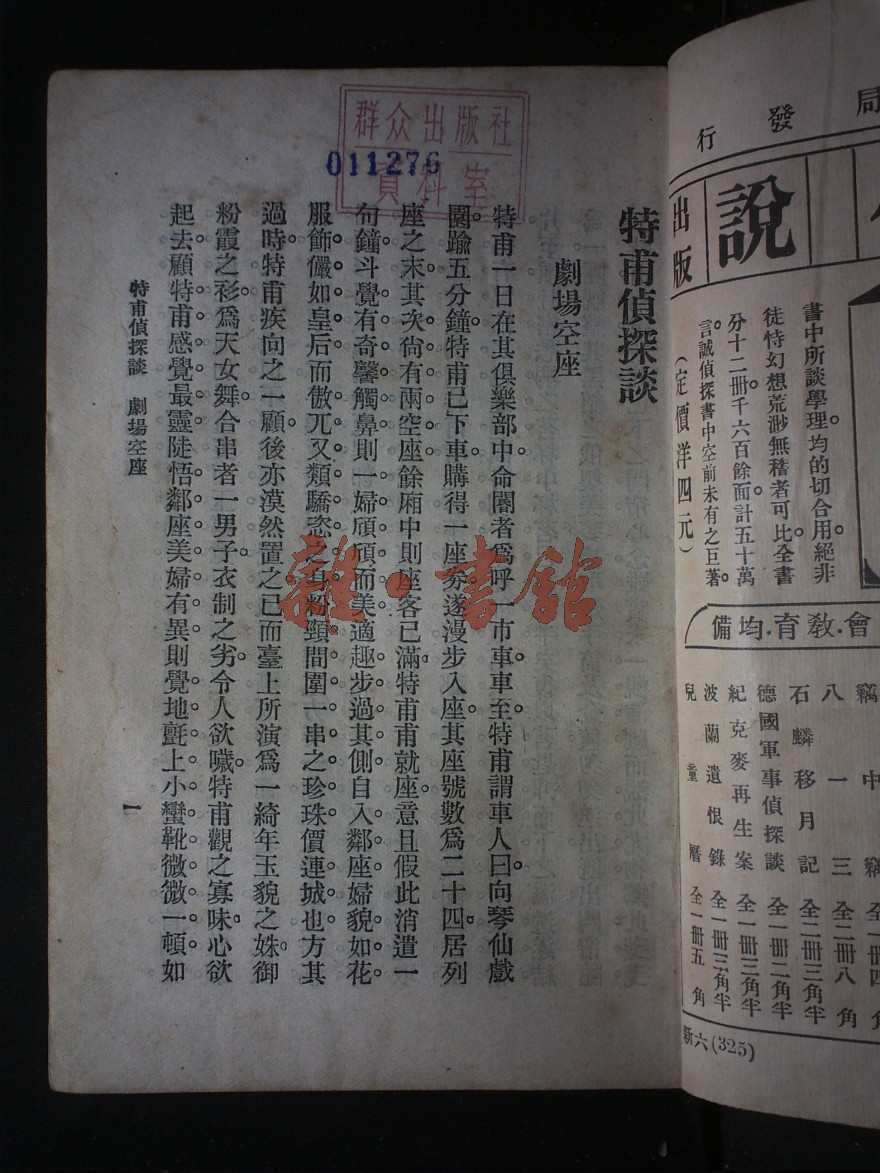 局
發
行
說
出版
書中所談學理均的切合用絕非
徒恃幻想荒渺無稽者可比全書
分十二冊千六百餘面計五十萬
言誠偵探書中空前未有之巨著
(定價洋四元)
會.教育.均備
竊中竊 全一冊四角
八一三 全二冊八角
石麟移月記 全二冊三角半
德國軍事偵探談 全一冊二角半
紀克麥再生案 全一冊三角半
波蘭遺恨錄 全一冊三角半
兒童曆 全一冊五角
新六(325)
群众出版社
資料室
011276
特甫偵探談
劇場空座
特甫一日在其俱樂部中命閽者爲呼一市車車至特甫謂車人曰向琴仙戲
園踰五分鐘特甫已下車購得一座劵遂漫步入座其座號數爲二十四居列
座之末其次尙有兩空座餘廂中則座客已滿特甫甫就座意且假此消遣一
句鐘斗覺有奇馨觸鼻則一婦頎頎而美適趣步過其側自入鄰座婦貌如花
服飾儼如皇后而傲兀又類驕恣之身粉頸間圍一串之珍珠價連城也方其
過時特甫疾向之一顧後亦漠然置之已而臺上所演爲一綺年玉貌之姝御
粉霞之衫爲天女舞合串者一男子衣制之劣令人欲噦特甫觀之寡味心欲
起去顧特甫感覺最靈陡悟鄰座美婦有異則覺地氈上小蠻靴微微一頓如
特甫偵探談 劇場空座
一
雜·書館